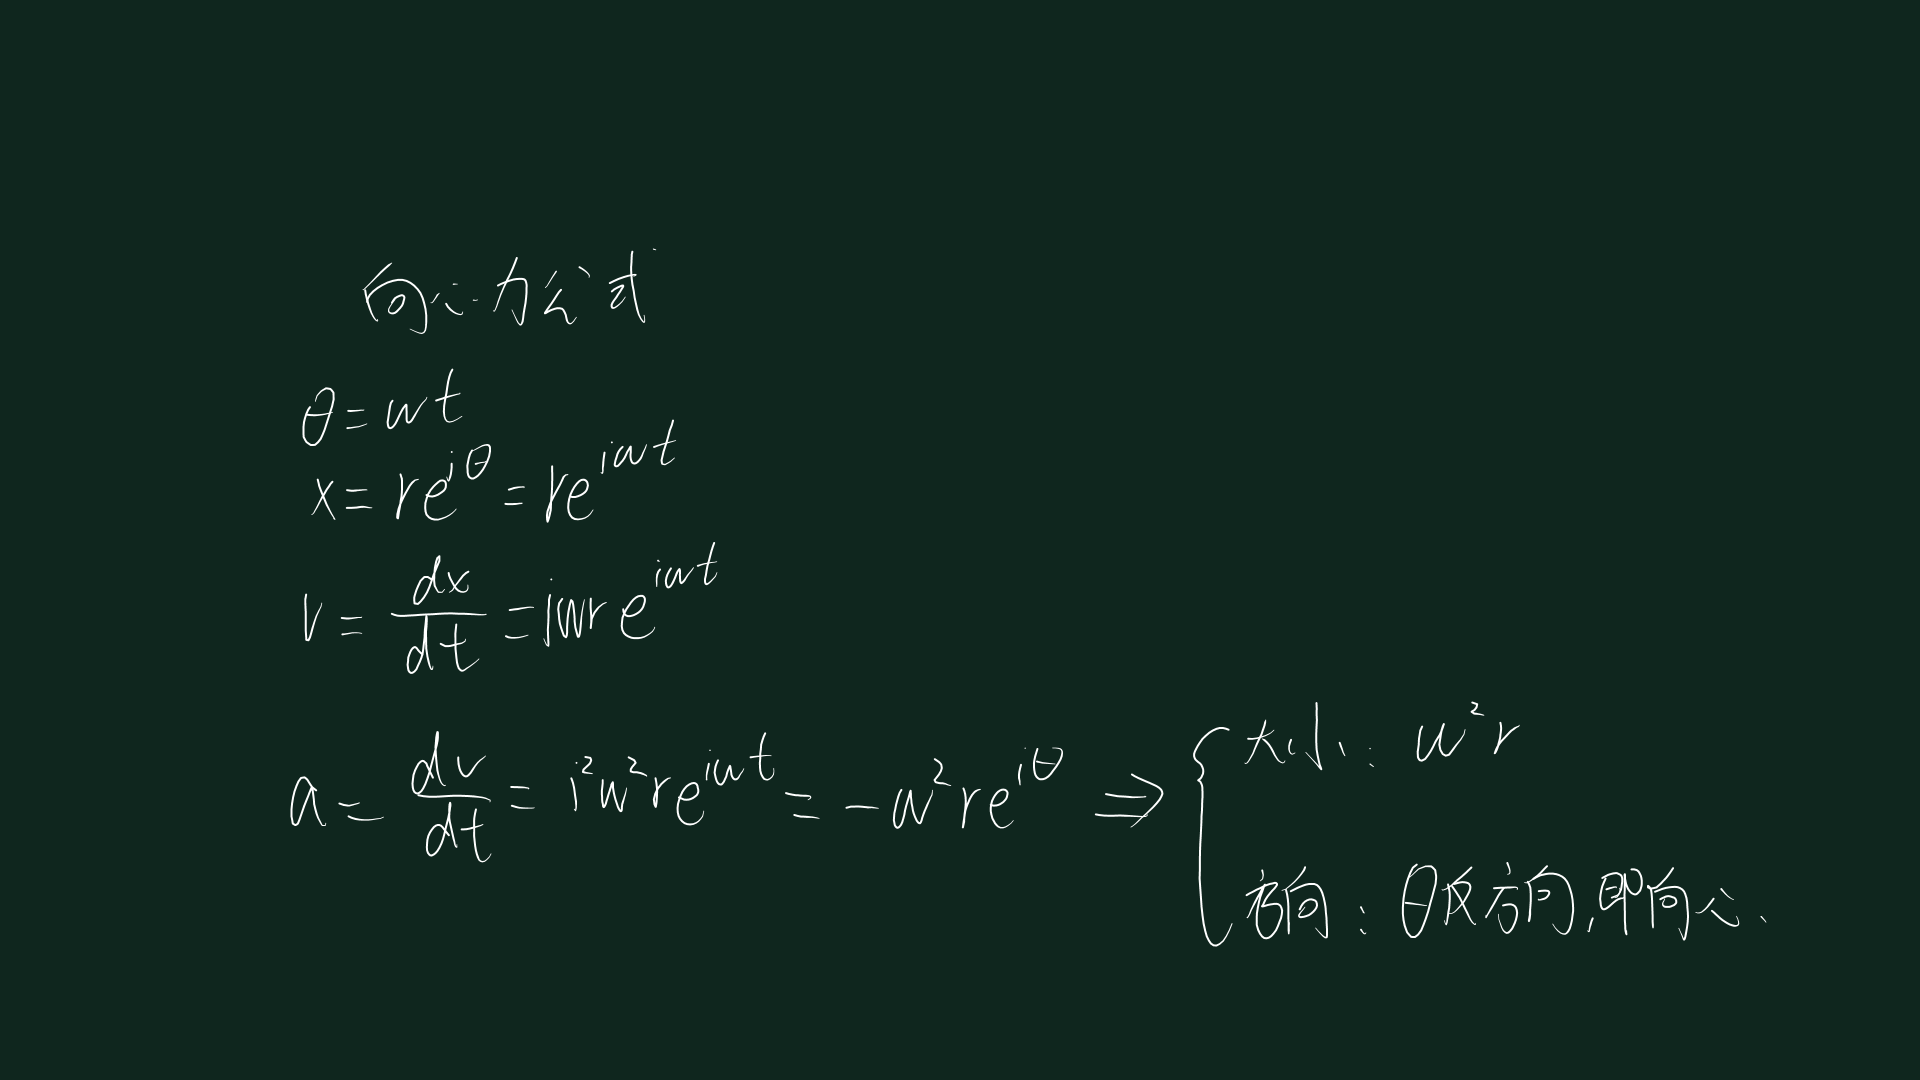 向心力公式
θ=wt
x=re^{iθ}=re^{iwt}
v=\frac{dx}{dt}=iwre^{iwt}
a=\frac{dv}{dt}=i²w²re^{iwt}=-w²re^{iθ}⇒{大小:w²r
方向:θ反方向,即向心.